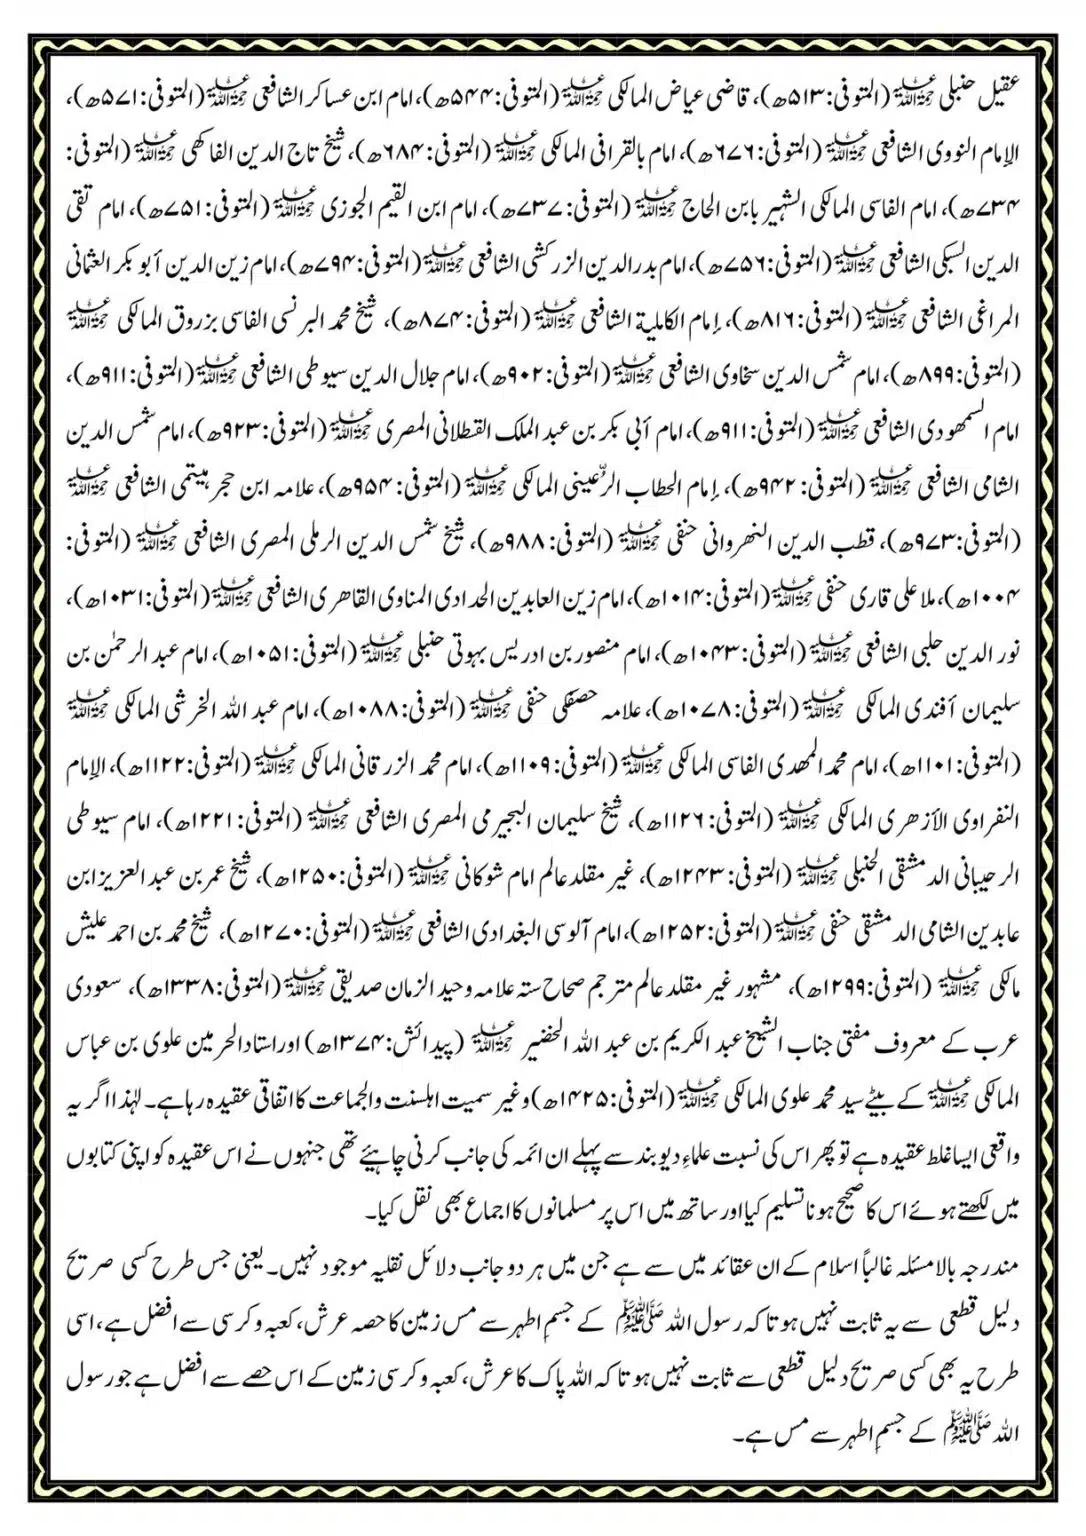 عقیل حنبلی رحمۃ اللہ علیہ (المتوفی: ۵۱۳ھ)، قاضی عیاض المالکی رحمۃ اللہ علیہ (المتوفی: ۵۴۴ھ)، امام ابن عساکر الشافعی رحمۃ اللہ علیہ (المتوفی: ۵۷۱ھ)،
الإمام النووی الشافعی رحمۃ اللہ علیہ (المتوفی: ۶۷۶ھ)، امام بالقرافی المالکی رحمۃ اللہ علیہ (المتوفی: ۶۸۴ھ)، شیخ تاج الدین الفاکھی رحمۃ اللہ علیہ (المتوفی:
۷۳۴ھ)، امام الفاسی المالکی الشہیر بابن الحاج رحمۃ اللہ علیہ (المتوفی: ۷۳۷ھ)، امام ابن القیم الجوزی رحمۃ اللہ علیہ (المتوفی: ۷۵۱ھ)، امام تقی
الدین السبکی الشافعی رحمۃ اللہ علیہ (المتوفی: ۷۵۶ھ)، امام بدرالدین الزرکشی الشافعی رحمۃ اللہ علیہ (المتوفی: ۷۹۴ھ)، امام زین الدین أبو بکر العثمانی
المراغی الشافعی رحمۃ اللہ علیہ (المتوفی: ۸۱۶ھ)، إمام الکاملیة الشافعی رحمۃ اللہ علیہ (المتوفی: ۸۷۴ھ)، شیخ محمد البرنسی الفاسی بزروق المالکی رحمۃ اللہ علیہ
(المتوفی: ۸۹۹ھ)، امام شمس الدین سخاوی الشافعی رحمۃ اللہ علیہ (المتوفی: ۹۰۲ھ)، امام جلال الدین سیوطی الشافعی رحمۃ اللہ علیہ (المتوفی: ۹۱۱ھ)،
امام السمھودی الشافعی رحمۃ اللہ علیہ (المتوفی: ۹۱۱ھ)، امام أبی بکر بن عبد الملک القسطلانی المصری رحمۃ اللہ علیہ (المتوفی: ۹۲۳ھ)، امام شمس الدین
الشامی الشافعی رحمۃ اللہ علیہ (المتوفی: ۹۴۲ھ)، إمام الحطاب الرُّعینی المالکی رحمۃ اللہ علیہ (المتوفی: ۹۵۴ھ)، علامہ ابن حجر ہیتمی الشافعی رحمۃ اللہ علیہ
(المتوفی: ۹۷۳ھ)، قطب الدین النھروانی حنفی رحمۃ اللہ علیہ (المتوفی: ۹۸۸ھ)، شیخ شمس الدین الرملی المصری الشافعی رحمۃ اللہ علیہ (المتوفی:
۱۰۰۴ھ)، ملا علی قاری حنفی رحمۃ اللہ علیہ (المتوفی: ۱۰۱۴ھ)، امام زین العابدین الحدادی المناوی القاھری الشافعی رحمۃ اللہ علیہ (المتوفی: ۱۰۳۱ھ)،
نور الدین حلبی الشافعی رحمۃ اللہ علیہ (المتوفی: ۱۰۴۳ھ)، امام منصور بن ادریس بہوتی حنبلی رحمۃ اللہ علیہ (المتوفی: ۱۰۵۱ھ)، امام عبد الرحمٰن بن
سلیمان أفندی المالکی رحمۃ اللہ علیہ (المتوفی: ۱۰۷۸ھ)، علامہ حصکفی حنفی رحمۃ اللہ علیہ (المتوفی: ۱۰۸۸ھ)، امام عبد اللہ الخرشی المالکی رحمۃ اللہ علیہ
(المتوفی: ۱۱۰۱ھ)، امام محمد المھدی الفاسی المالکی رحمۃ اللہ علیہ (المتوفی: ۱۱۰۹ھ)، امام محمد الزرقانی المالکی رحمۃ اللہ علیہ (المتوفی: ۱۱۲۲ھ)، الإمام
النفراوی الأزھری المالکی رحمۃ اللہ علیہ (المتوفی: ۱۱۲۶ھ)، شیخ سلیمان البجیرمی المصری الشافعی رحمۃ اللہ علیہ (المتوفی: ۱۲۲۱ھ)، امام سیوطی
الرحیبانی الدمشقی الحنبلی رحمۃ اللہ علیہ (المتوفی: ۱۲۴۳ھ)، غیر مقلد عالم امام شوکانی رحمۃ اللہ علیہ (المتوفی: ۱۲۵۰ھ)، شیخ عمر بن عبد العزیز ابن
عابدین الشامی الدمشقی حنفی رحمۃ اللہ علیہ (المتوفی: ۱۲۵۲ھ)، امام آلوسی البغدادی الشافعی رحمۃ اللہ علیہ (المتوفی: ۱۲۷۰ھ)، شیخ محمد بن احمد علیش
مالکی رحمۃ اللہ علیہ (المتوفی: ۱۲۹۹ھ)، مشہور غیر مقلد عالم مترجم صحاح ستہ علامہ وحید الزمان صدیقی رحمۃ اللہ علیہ (المتوفی: ۱۳۳۸ھ)، سعودی
عرب کے معروف مفتی جناب الشیخ عبد الکریم بن عبد اللہ الخضیر رحمۃ اللہ علیہ (پیدائش: ۱۳۷۴ھ) اور استاد الحرمین علوی بن عباس
المالکی رحمۃ اللہ علیہ کے بیٹے سید محمد علوی المالکی رحمۃ اللہ علیہ (المتوفی: ۱۴۲۵ھ) وغیر سمیت اہلسنت والجماعت کا اتفاقی عقیدہ رہا ہے۔ لہٰذا اگر یہ
واقعی ایسا غلط عقیدہ ہے تو پھر اس کی نسبت علماءِ دیوبند سے پہلے ان ائمہ کی جانب کرنی چاہیئے تھی جنہوں نے اس عقیدہ کو اپنی کتابوں
میں لکھتے ہوئے اس کا صحیح ہونا تسلیم کیا اور ساتھ میں اس پر مسلمانوں کا اجماع بھی نقل کیا۔
مندرجہ بالا مسئلہ غالباً اسلام کے ان عقائد میں سے ہے جن میں ہر دو جانب دلائل نقلیہ موجود نہیں۔ یعنی جس طرح کسی صریح
دلیل قطعی سے یہ ثابت نہیں ہوتا کہ رسول اللہ ﷺ کے جسمِ اطہر سے مس زمین کا حصہ عرش، کعبہ و کرسی سے افضل ہے، اسی
طرح یہ بھی کسی صریح دلیل قطعی سے ثابت نہیں ہوتا کہ اللہ پاک کا عرش، کعبہ و کرسی زمین کے اس حصے سے افضل ہے جو رسول
اللہ ﷺ کے جسمِ اطہر سے مس ہے۔